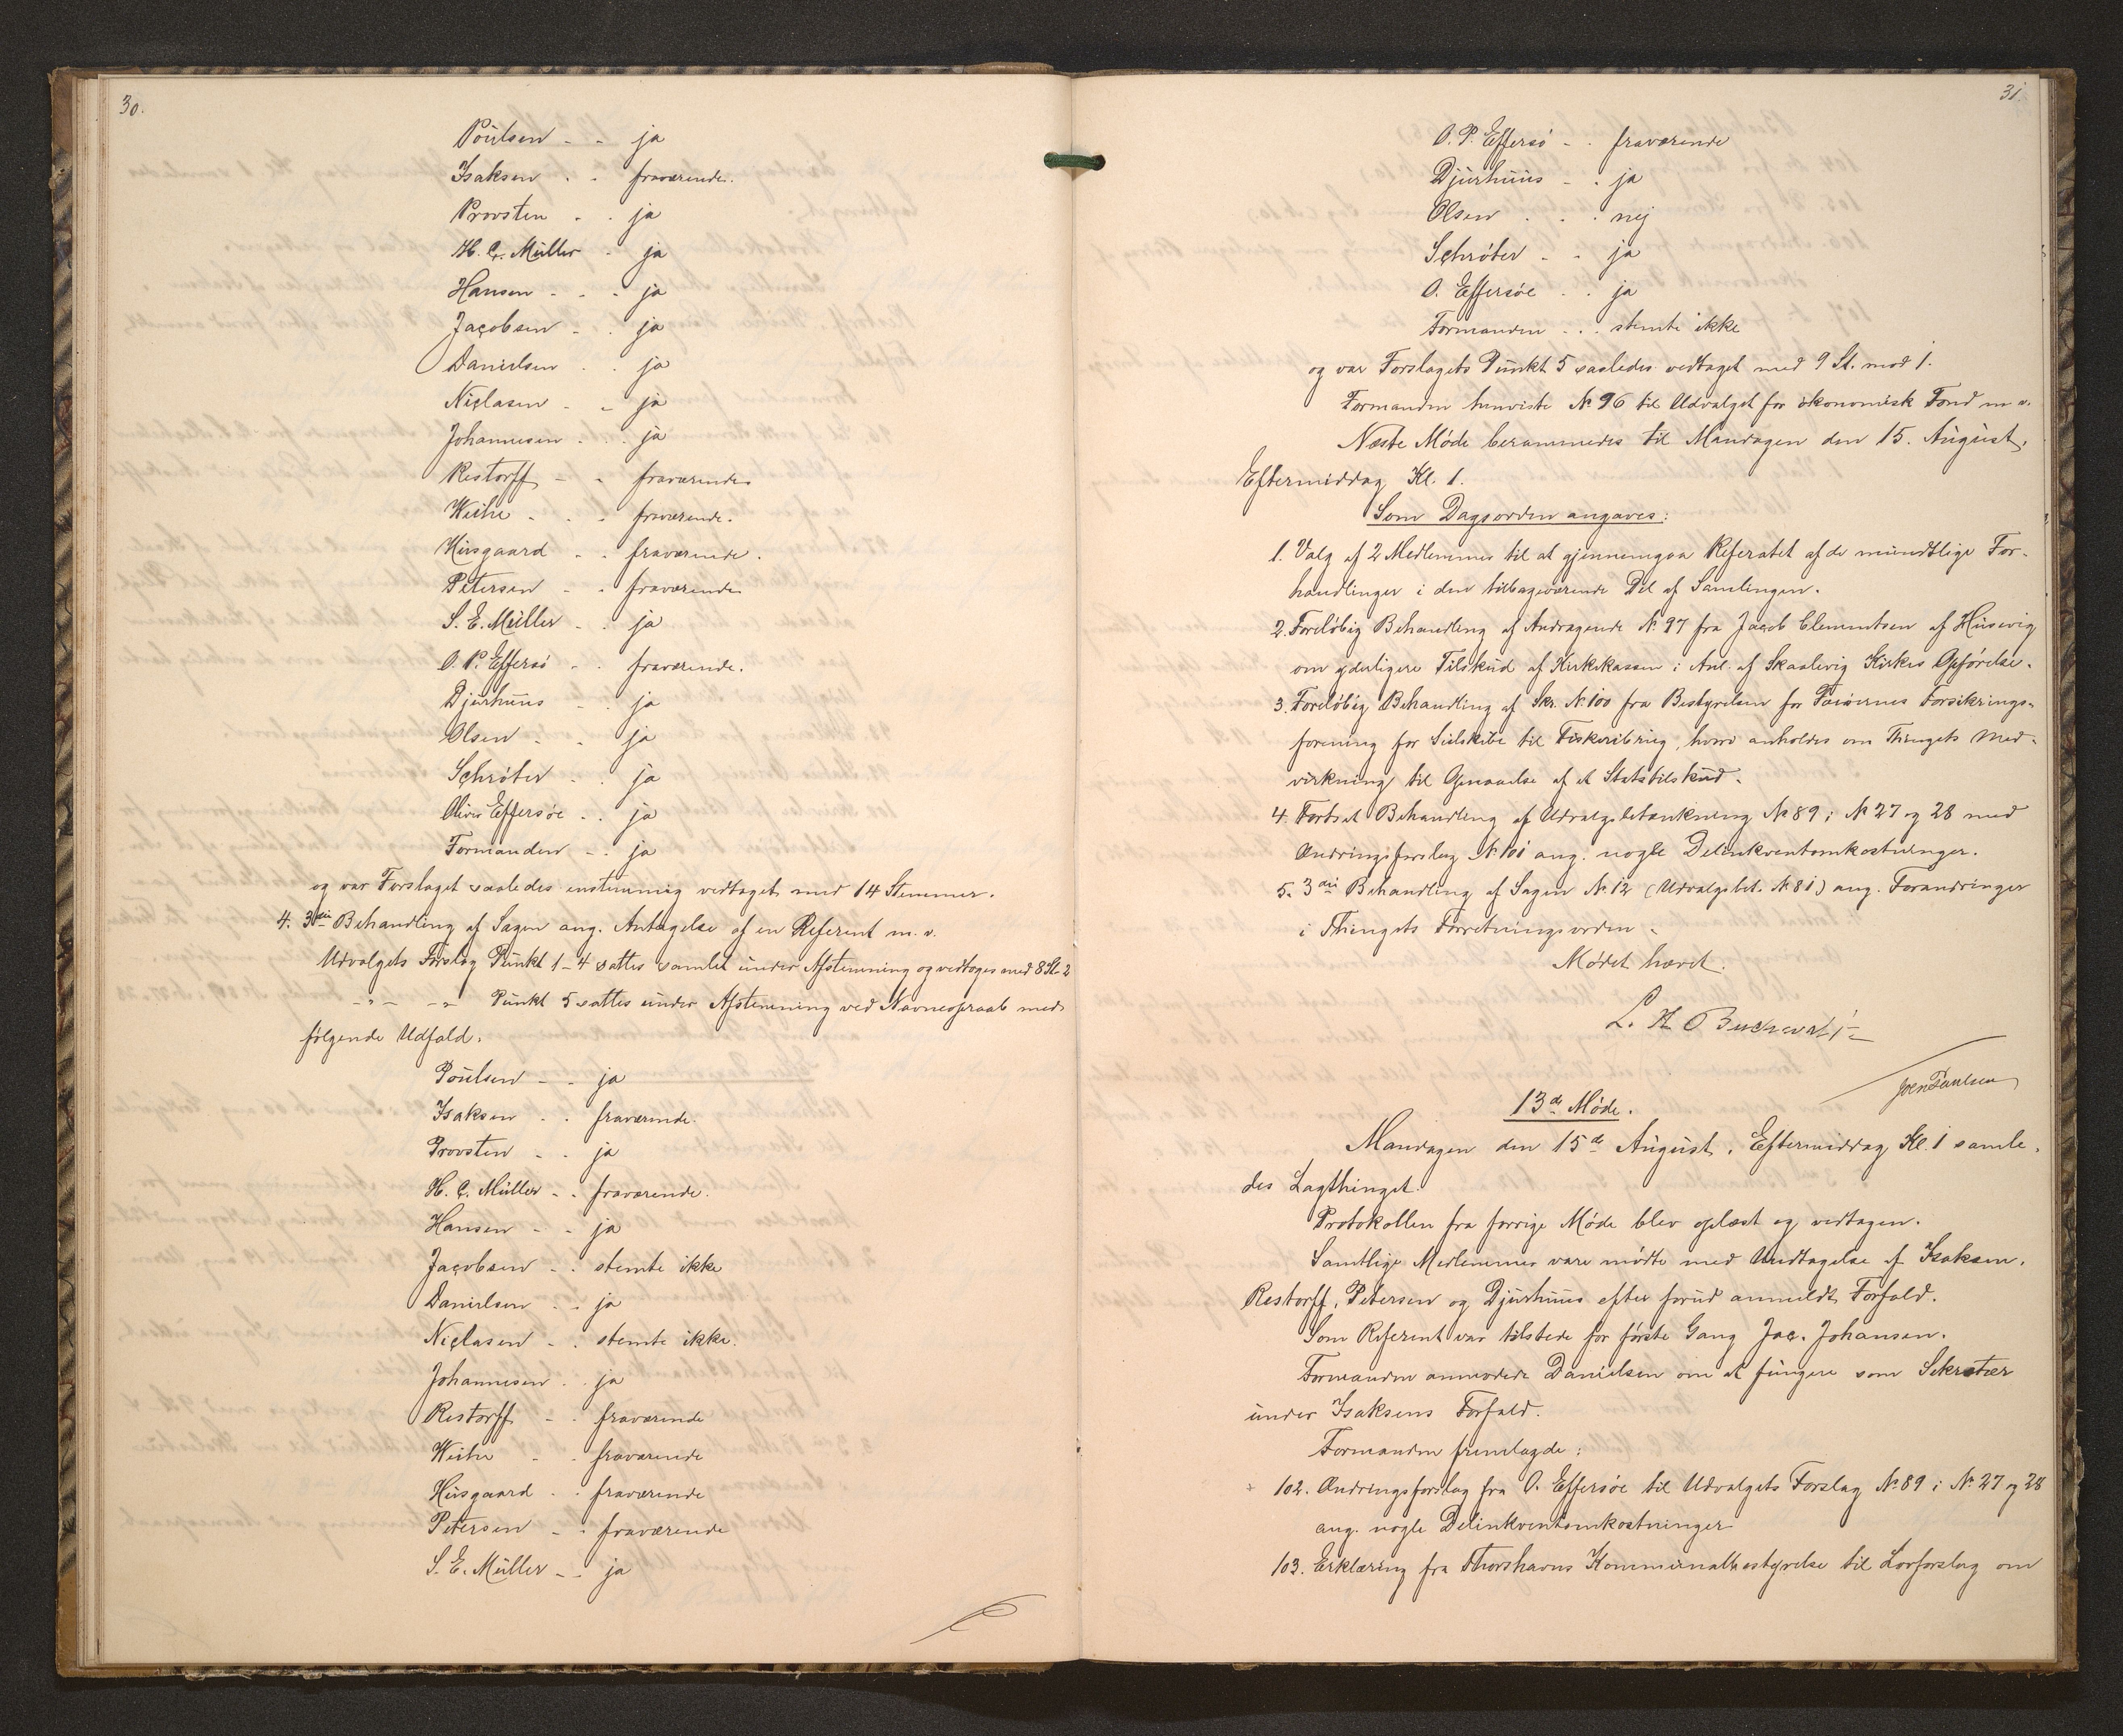 30.
Poulsen - - ja
Isaksen - - fraværende.
Provsten - - ja
H. C. Müller - ja
Hansen - - - ja
Jacobsen - - ja
Danielsen - - ja
Niclasen - - ja
Johannesen - - ja
Restorff - - fraværende
Weihe - - - fraværende.
Huusgaard - - fraværende.
Petersen - - fraværende
S. E. Müller - - ja
O. P. Effersö - - fraværende.
Djurhuus - - ja
Olsen - - ja
Schröter - - ja
Oliver Effersöe - - ja
Formanden - - ja
og var Forslaget saaledes enstemmig vedtaget med 14 Stemmer.
4. 3die Behandling af Sagen ang. Antagelse af en Referent m. v.
Udvalgets Forslag Punkt 1-4 sattes samlet under Afstemning og vedtoges med 8 St.
-"- -"- Punkt 5 sattes under Afstemning ved Navneopraab med
følgende Udfald.
Poulsen - - ja
Isaksen - - fraværende.
Provsten - - ja
H. C. Müller - - fraværende.
Hansen - - ja
Jacobsen - - stemte ikke
Danielsen - - ja
Niclasen - - stemte ikke.
Johannesen - - ja
Restorff - - fraværende
Weihe - - fraværende
Huusgaard - - fraværende
Petersen - - fraværende
S. E. Müller - - ja
31.
O. P. Effersö - - fraværende
Djurhuus - - ja
Olsen - - - nej
Schröter - - ja
O. Effersöe - - ja
Formanden - - - stemte ikke
og var Forslagets Punkt 5 saaledes vedtaget med 9 St. mod 1.
Formanden henviste № 96 til Udvalget for økonomisk Fond m. v.
Næste Møde berammedes til Mandagen den 15. August,
Eftermiddag Kl. 1.
Som Dagsorden angaves:
1. Valg af 2 Medlemmer til at gjennemgaa Referatet af de mundtlige For-
handlinger i den tilbageværende Del af Samlingen.
2. Foreløbig Behandling af Andragende № 97 fra Jacob Clemmtsen af Husevig
om yderligere Tilskud af Kirkekassen i Anl. af Skaalevig Kirkes Opførelse.
3. Foreløbig Behandling af Skr. № 100 fra Bestyrelsen for Færøernes Forsikrings-
forening for Seilskibe til Fiskeribrug, hvori anholdes om Thingets Med-
virkning til Opnaaelse af et Statstilskud.
4. Fortsat Behandling af Udvalgsbetænkning № 89 i № 27 og 28 med
Ændringsforslag № 101 ang. nogle Delinkventomkostninger.
5. 3die Behandling af Sagen № 12 (Udvalgsbet. № 81) ang. Forandringer
i Thingets Forretningsorden.
Mødet hævet.
L. H Buchwaldt
Joen Poulsen
13de Møde.
Mandagen den 15de August, Eftermiddag Kl. 1 samle-
des Lagthinget.
Protokollen fra forrige Møde blev oplæst og vedtagen.
Samtlige Medlemmer vare mødte med Undtagelse af Isaksen,
Restorff, Petersen og Djurhuus efter forud anmeldt Forfald.
Som Referent var tilstede for første Gang Jac. Johansen.
Formanden anmodede Danielsen om at fungere som Sekretær
under Isaksens Forfald.
Formanden fremlagde:
102. Ændringsforslag fra O. Effersöe til Udvalgets Forslag № 89 i № 27 og 28
ang. nogle Delinkventomkostninger
103. Erklæring fra Thorshavns Kommunalbestyrelse til Lovforslag om